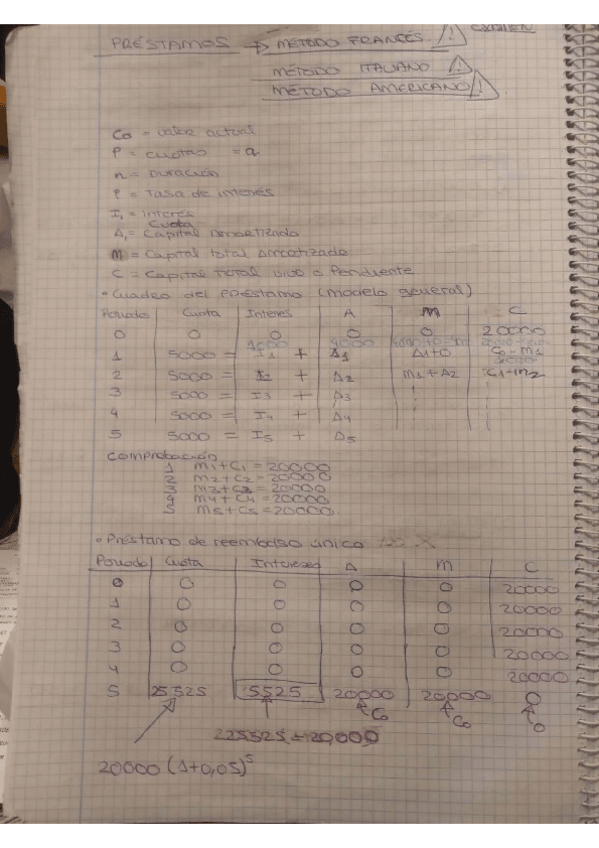 EXAMEN
PRÉSTAMOS → MÉTODO FRANCÉS
MÉTODO ITALIANO
MÉTODO AMERICANO
Co = valor actual
P = cuotas = a
n = Duración
P = Tasa de interés
I₁ = interés
Cuota
A₁ = Capital Amortizado
M = Capital total Amortizado
C = Capital Total vivo o Pendiente
• Cuadro del préstamo (modelo general)
Periodo Cuota Interes A M C
0 0 0 0 0 20000
1 5000 = I₁ + A₁ A1+0 C₀-M₁
2 5000 = I₂ + A₂ M₁+A₂ C₁-M₂
3 5000 = I₃ + A₃
4 5000 = I₄ + A₄
5 5000 = I₅ + A₅
Comprobación
1 M₁+C₁ = 20000
2 M₂+C₂ = 20000
3 M₃+C₃ = 20000
4 M₄+C₄ = 20000
5 M₅+C₅ = 20000
• Préstamo de reembolso único
Periodo Cuota Intereses A M C
0 0 0 0 0 20000
1 0 0 0 0 20000
2 0 0 0 0 20000
3 0 0 0 0 20000
4 0 0 0 0 20000
5 25525 5525 20000 20000 0
Co Co 0
20000 (1+0,05)⁵